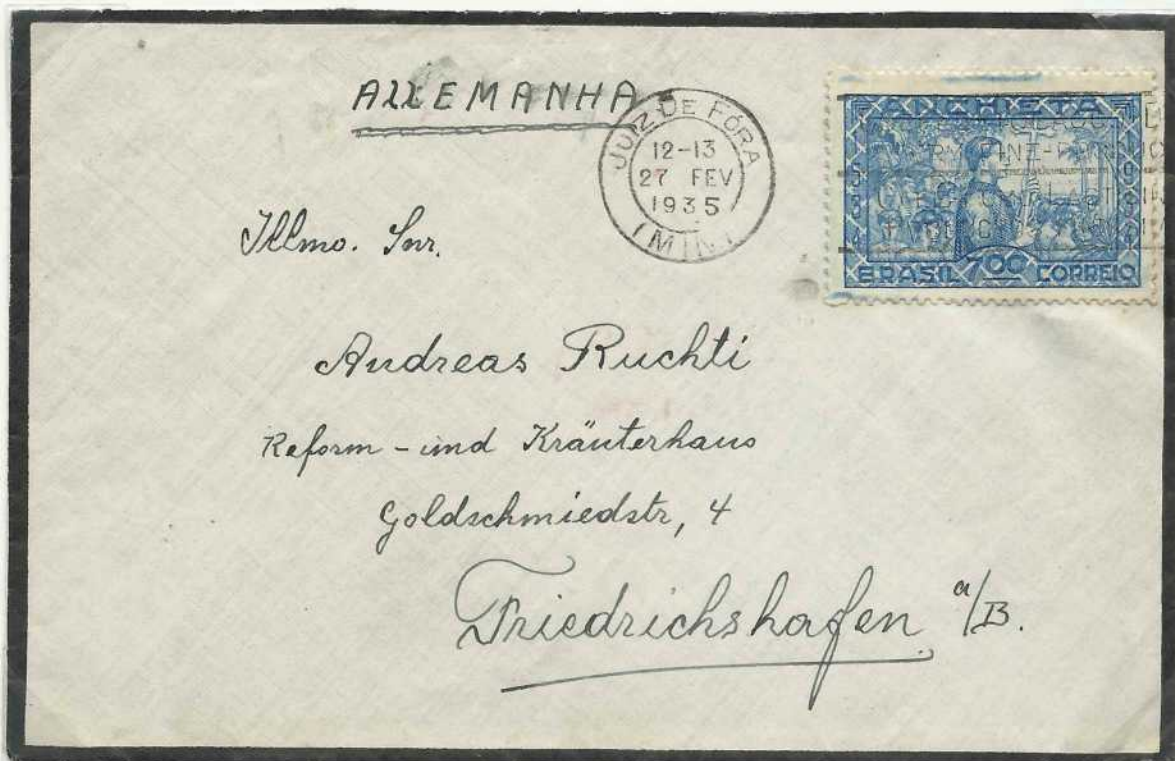 ALLEMANHA
JUIZ DE FÓRA
12-13
27 FEV
1935
(MIN)
ANCHIETA
1534
1934
BRASIL 700 CORREIO
Illmo. Snr.
Andreas Ruchti
Reform - und Kräuterhaus
Goldschmiedstr, 4
Friedrichshafen a/B.